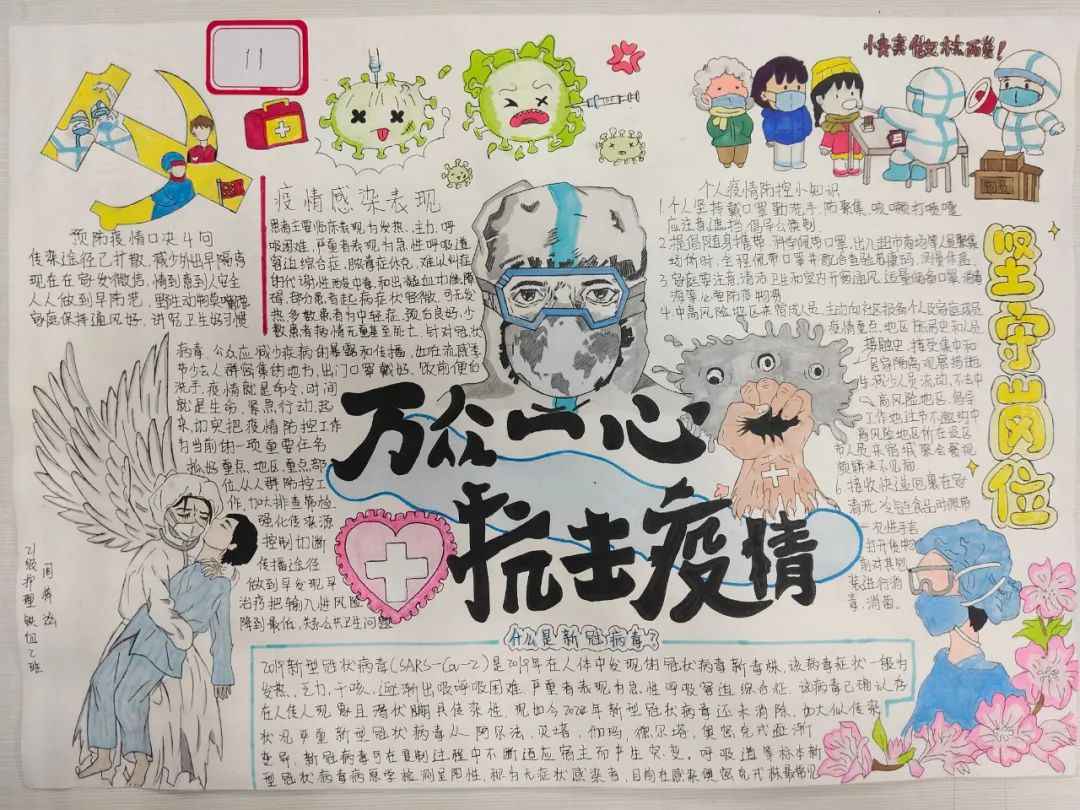 11
小卖卖做核酸啦!
预防疫情口决4句
传染途径已扩散,减少外出早隔离
现在在家发微信,情到意到人安全
人人做到早防范,野生动物莫嘴馋
家庭保持通风好,讲究卫生好习惯
疫情感染表现
患者主要临床表现为发热、乏力、呼
吸困难,严重者表现为急性呼吸道
窘迫综合症,脓毒症休克,难以纠正
的代谢性酸中毒和出凝血功能障
碍,部分患者起病症状轻微,可无发
热,多数患者为中轻症,预后良好,少
数患者病情危重甚至死亡,针对冠状
病毒,公众应减少疾病的暴露和传播,也在流感季
节少去人群密集的地方,出门口罩戴好,饭前便后
洗手,疫情就是命令,时间
就是生命,紧急行动起
来,切实把疫情防控工作
为当前的一项重要任务
抓好重点,地区,重点部
位,从人群防控工
作,加大排查筛检
强化传染源
控制切断
传播途径
做到早发现早
治疗把输入性风险
降到最低,关心公共卫生问题
个人疫情防控小知识
1.个人坚持戴口罩勤洗手,防聚集,咳嗽打喷嚏
应注意遮挡,倡导公筷制
2.提倡随身携带,科学佩带口罩,出入超市商场等人员聚集
场所时,全程佩带口罩并配合查验苏康码,测量体温
3.家庭要注意清洁卫生和室内开窗通风,适量储备口罩,消毒
液等必要防疫物资
4.中高风险地区来宿返人员,主动向社区报备个人及家庭成员
疫情重点,地区旅居史和人员
接触史,接受集中和
居家隔离观察措施
5.减少人员流动,不去中
高风险地区,倡导
工作地过节不邀约中
高风险地区所在设区
市人员来宿,聚餐聚会
6.接收快递
消洗
毒,消菌。
坚守岗位
万众一心
抗击疫情
21级护理
什么是新冠病毒?
2019新型冠状病毒(SARS-Cov-2)是2019年在人体中发现的冠状病毒新毒株,该病毒症状一般为
发热,乏力,干咳,逐渐出现呼吸困难,严重者表现为急性呼吸窘迫综合症,该病毒已确认存
在人传人现象且潜伏期具传染性,现如今2022年新型冠状病毒还未消除,加大似传染
状况严重新型冠状病毒从阿尔法,贝塔,伽玛,德尔塔,奥密克戎逐渐
变异,新冠病毒可在复制过程中不断适应宿主而产生突变,呼吸道等标本新
型冠状病毒病原学检测呈阳性,称为无症状感染者,目前在感染奥密克戎株最常见